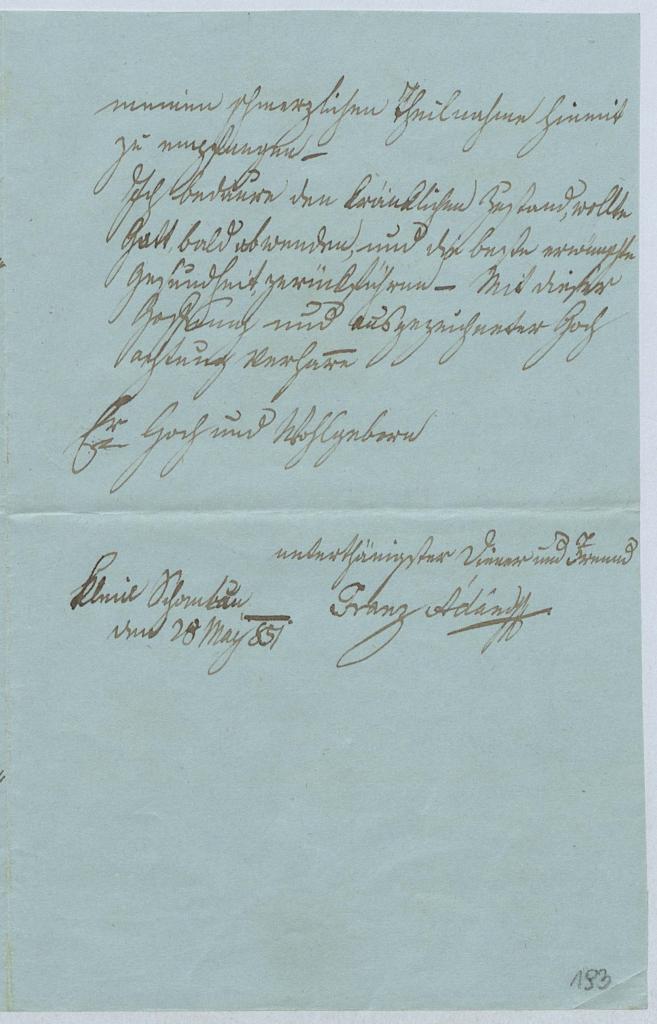 meinen schmerzlichen Theilnahme hiemit
zu empfangen –
Ich bedaure den kränklichen Zustand, wollte
Gott, bald abwenden, und die beste erwünschte
Gesundheit zurükführen – Mit dieser
Hoffnung und ausgezeichneter Hoch
achtung verharre
Er Hoch und Wohlgeborn
unterthänigster Diener und Freund
Franz
den 28 May 851
193